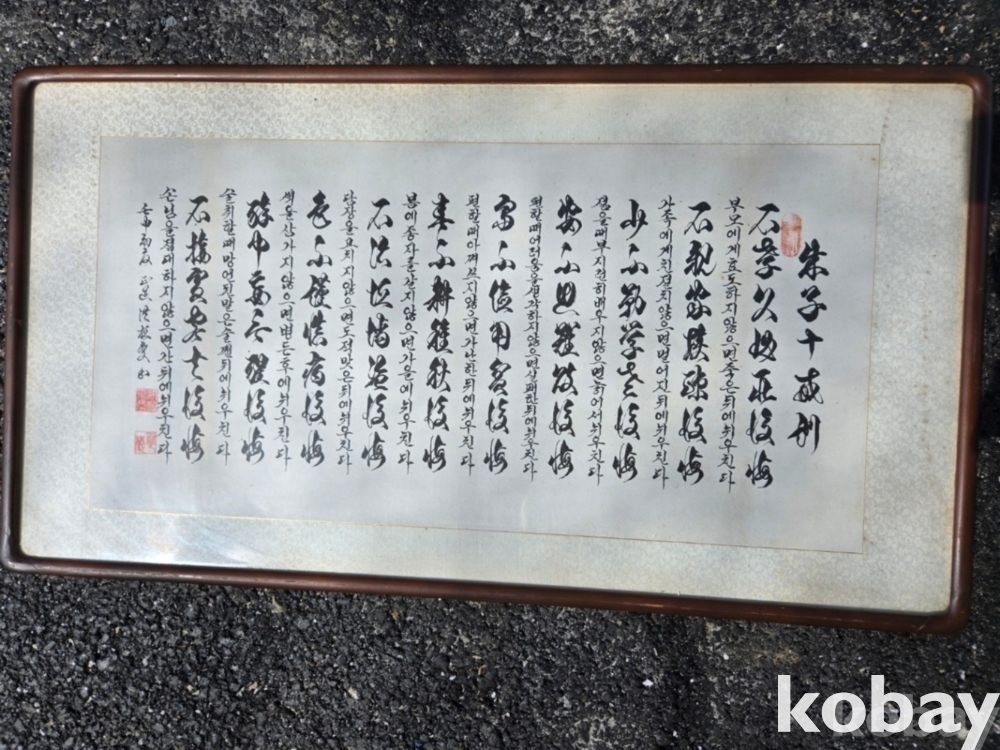 朱子十戒訓
不孝父母死後悔
부모에게효도하지않으면죽은뒤에뉘우친다
不親家族疎後悔
가족에게친절치않으면멀어진뒤에뉘우친다
少不勤學老後悔
젊을때부지런히배우지않으면늙어서뉘우친다
安不思難敗後悔
편할때어려움을생각하지않으면실패한뒤에뉘우친다
富不儉用貧後悔
편한때아껴쓰지않으면가난한뒤에뉘우친다
春不耕種秋後悔
봄에종자를갈지않으면가을에뉘우친다
不治垣墻盜後悔
담장을고치지않으면도적맞은뒤에뉘우친다
色不謹愼病後悔
색을삼가지않으면병든후에뉘우친다
醉中妄言醒後悔
술취한때망언된말은술깬뒤에뉘우친다
不接賓客去後悔
손님을접대하지않으면간뒤에뉘우친다
壬申初秋
kobay